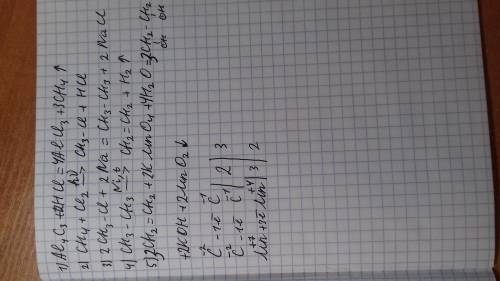 1) Al₄C₃ + 12HCl = 4AlCl₃ + 3CH₄ ↑
2) CH₄ + Cl₂ hν→ CH₃-Cl + HCl
3) 2CH₃-Cl + 2Na = CH₃-CH₃ + 2NaCl
4) CH₃-CH₃ Ni, t→ CH₂=CH₂ + H₂ ↑
5) 3CH₂=CH₂ + 2KMnO₄ + 4H₂O = 3CH₂-CH₂
OH OH
+2KOH + 2MnO₂ ↓
C⁻² - 1e C⁻¹ | 2 | 3
C⁻² - 1e C⁻¹
Mn⁺⁷ + 3e Mn⁺⁴ | 3 | 2